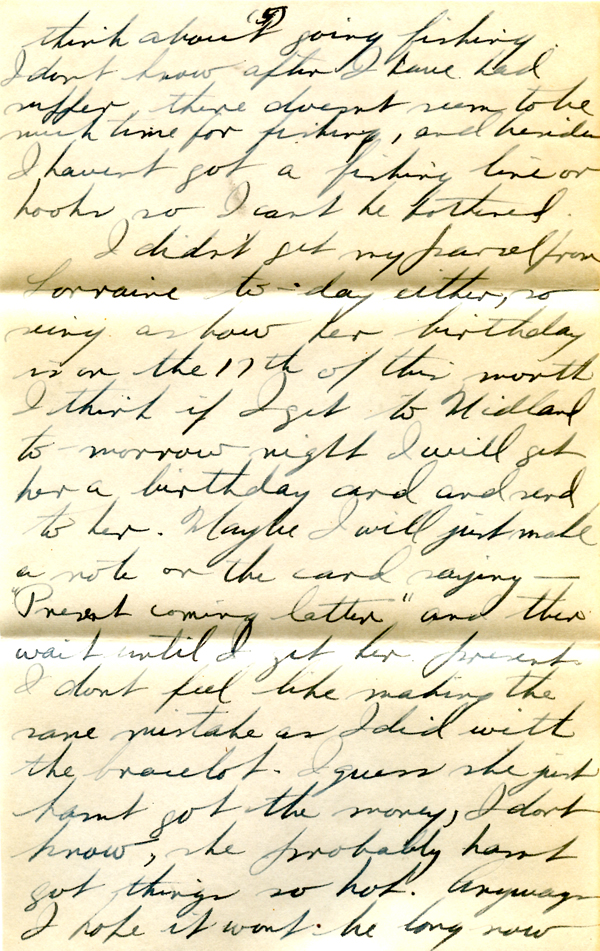 (5)
think about going fishing.
I dont know after I have had
supper, there doesnt seem to be
much time for fishing, and besides
I havent got a fishing line or
hooks so I cant be bothered.
I didn't get my parcel from
Lorraine to-day either, so
seing as how her birthday
is on the 17th of this month
I think if I get to Midland
to-morrow night I will get
her a birthday card and send
to her. Maybe I will just make
a note on the card saying —
"Present coming latter" and then
wait until I get her present.
I dont feel like making the
same mistake as I did with
the bracelot. I guess she just
hasnt got the money, I dont
know, she probably hasnt
got things so hot. Anyways
I hope it wont be long now